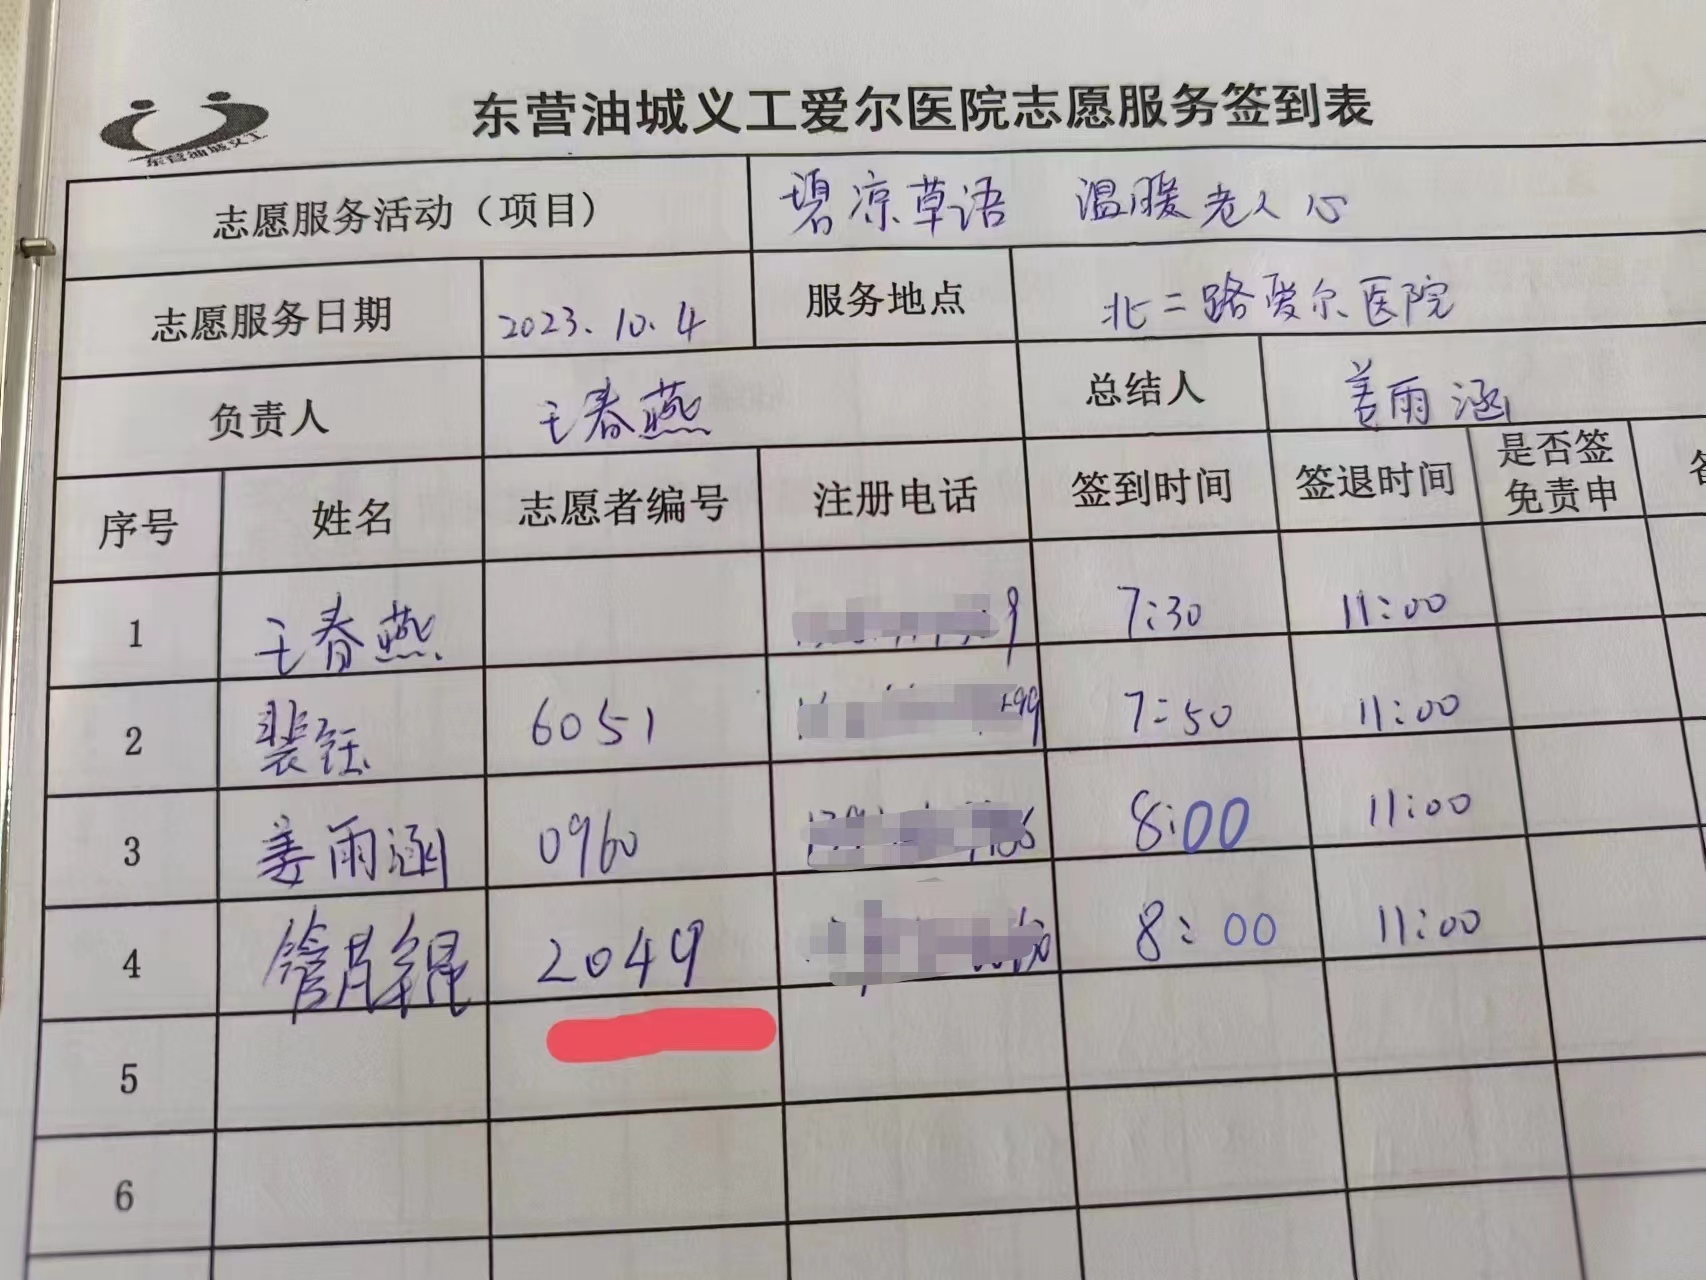 东营油城义工
东营油城义工爱尔医院志愿服务签到表
志愿服务活动（项目） 碧凉草语 温暖老人心
志愿服务日期 2023.10.4 服务地点 北二路爱尔医院
负责人 王春燕 总结人 姜雨涵
序号 姓名 志愿者编号 注册电话 签到时间 签退时间 是否签
免责申
1 王春燕 9 7:30 11:00
2 裴钰 6051 99 7:50 11:00
3 姜雨涵 0960 8:00 11:00
4 2049 8:00 11:00
5
6